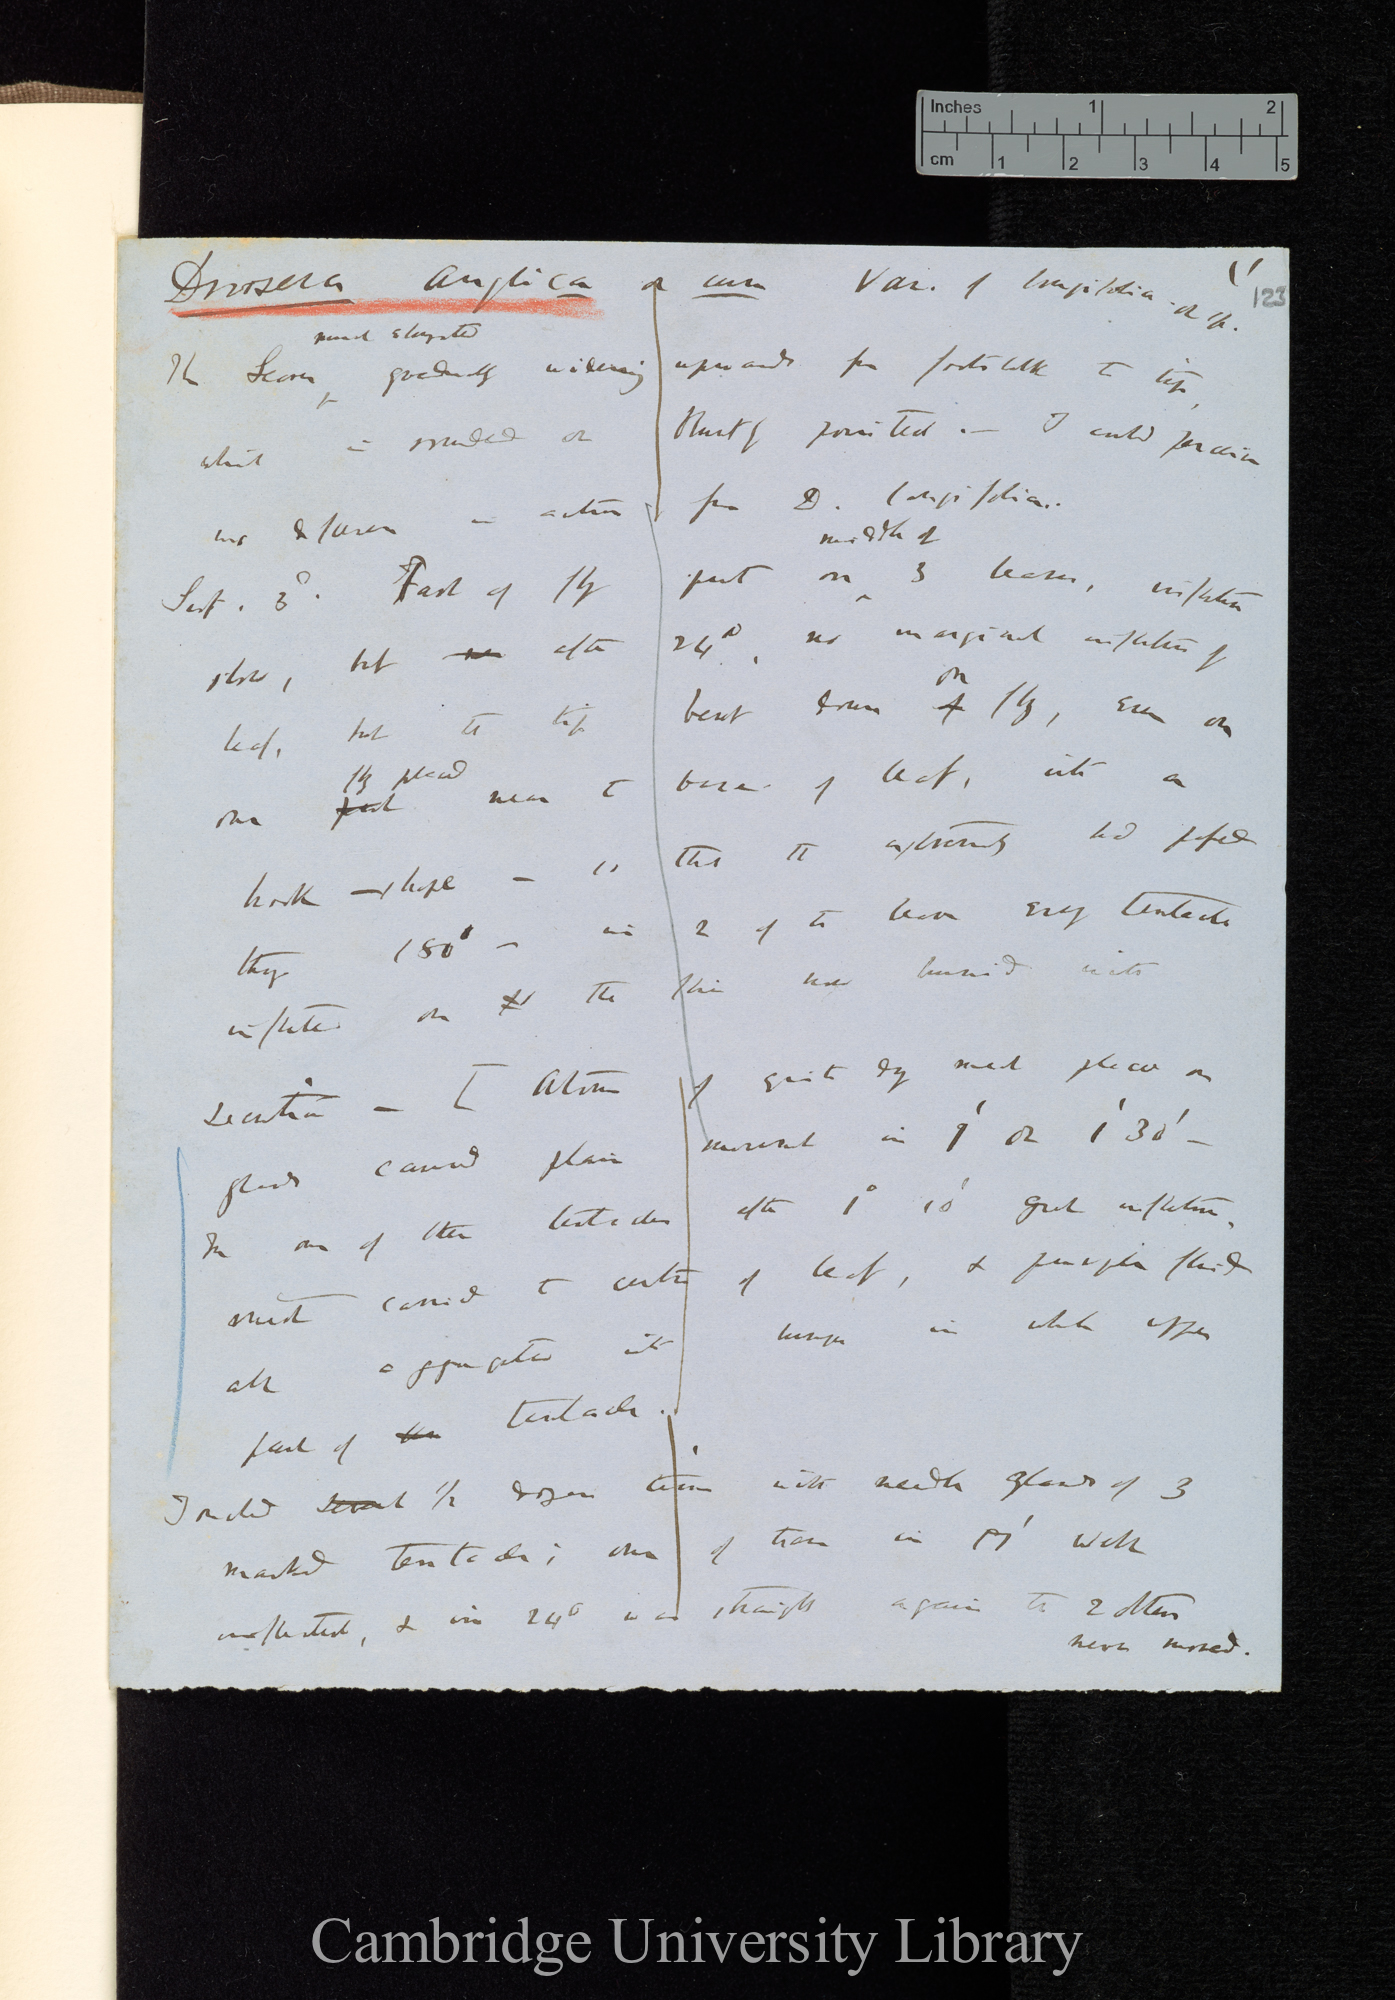 Inches 1 2
cm 1 2 3 4 5
Drosera Anglica or Var. of longifolia
123
much elongated
The leaves gradually widening upwards from footstalk to tip,
which is rounded or bluntly pointed.— I could perceive
no difference in action from D. longifolia.
middle of
Sept. 3d. Part of fly put on 3 leaves, inflection
slow, but after 24°, no marginal inflection of
on
leaf, but the tip bent down fly, even on
fly placed
one near to base of leaf, into a
hook-shape — so that the extremity had passed
thro 180° — in 2 of the leaves every tentacle
inflected on the skin now buried with
secretion — [ Atoms of quite dry meat placed on
glands caused plain movement in 1' or 1' 30' —
In one of these tentacles after 1° 10' great inflection,
meat carried to centre of leaf, & purple fluid
all aggregated into in whole upper
part of tentacle.
I 1/2 dozen times with needle glands of 3
marked tentacles; one of them in 17' well
inflected, & in 24° was straight again the 2 others
never moved.
Cambridge University Library